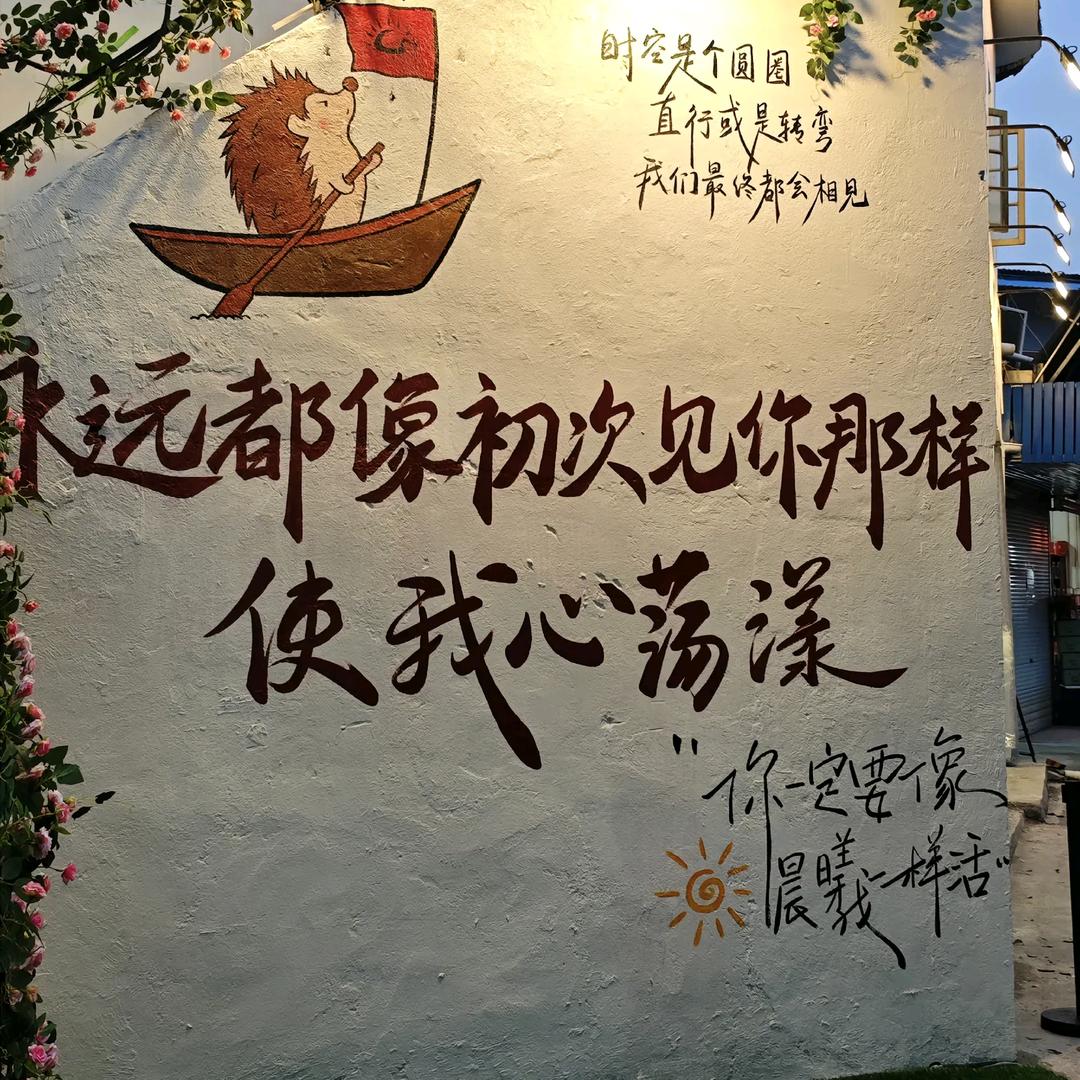 时空是个圆圈
直行或是转弯
我们最终都会相见
永远都像初次见你那样
使我心荡漾
"你一定要像
晨曦一样活"